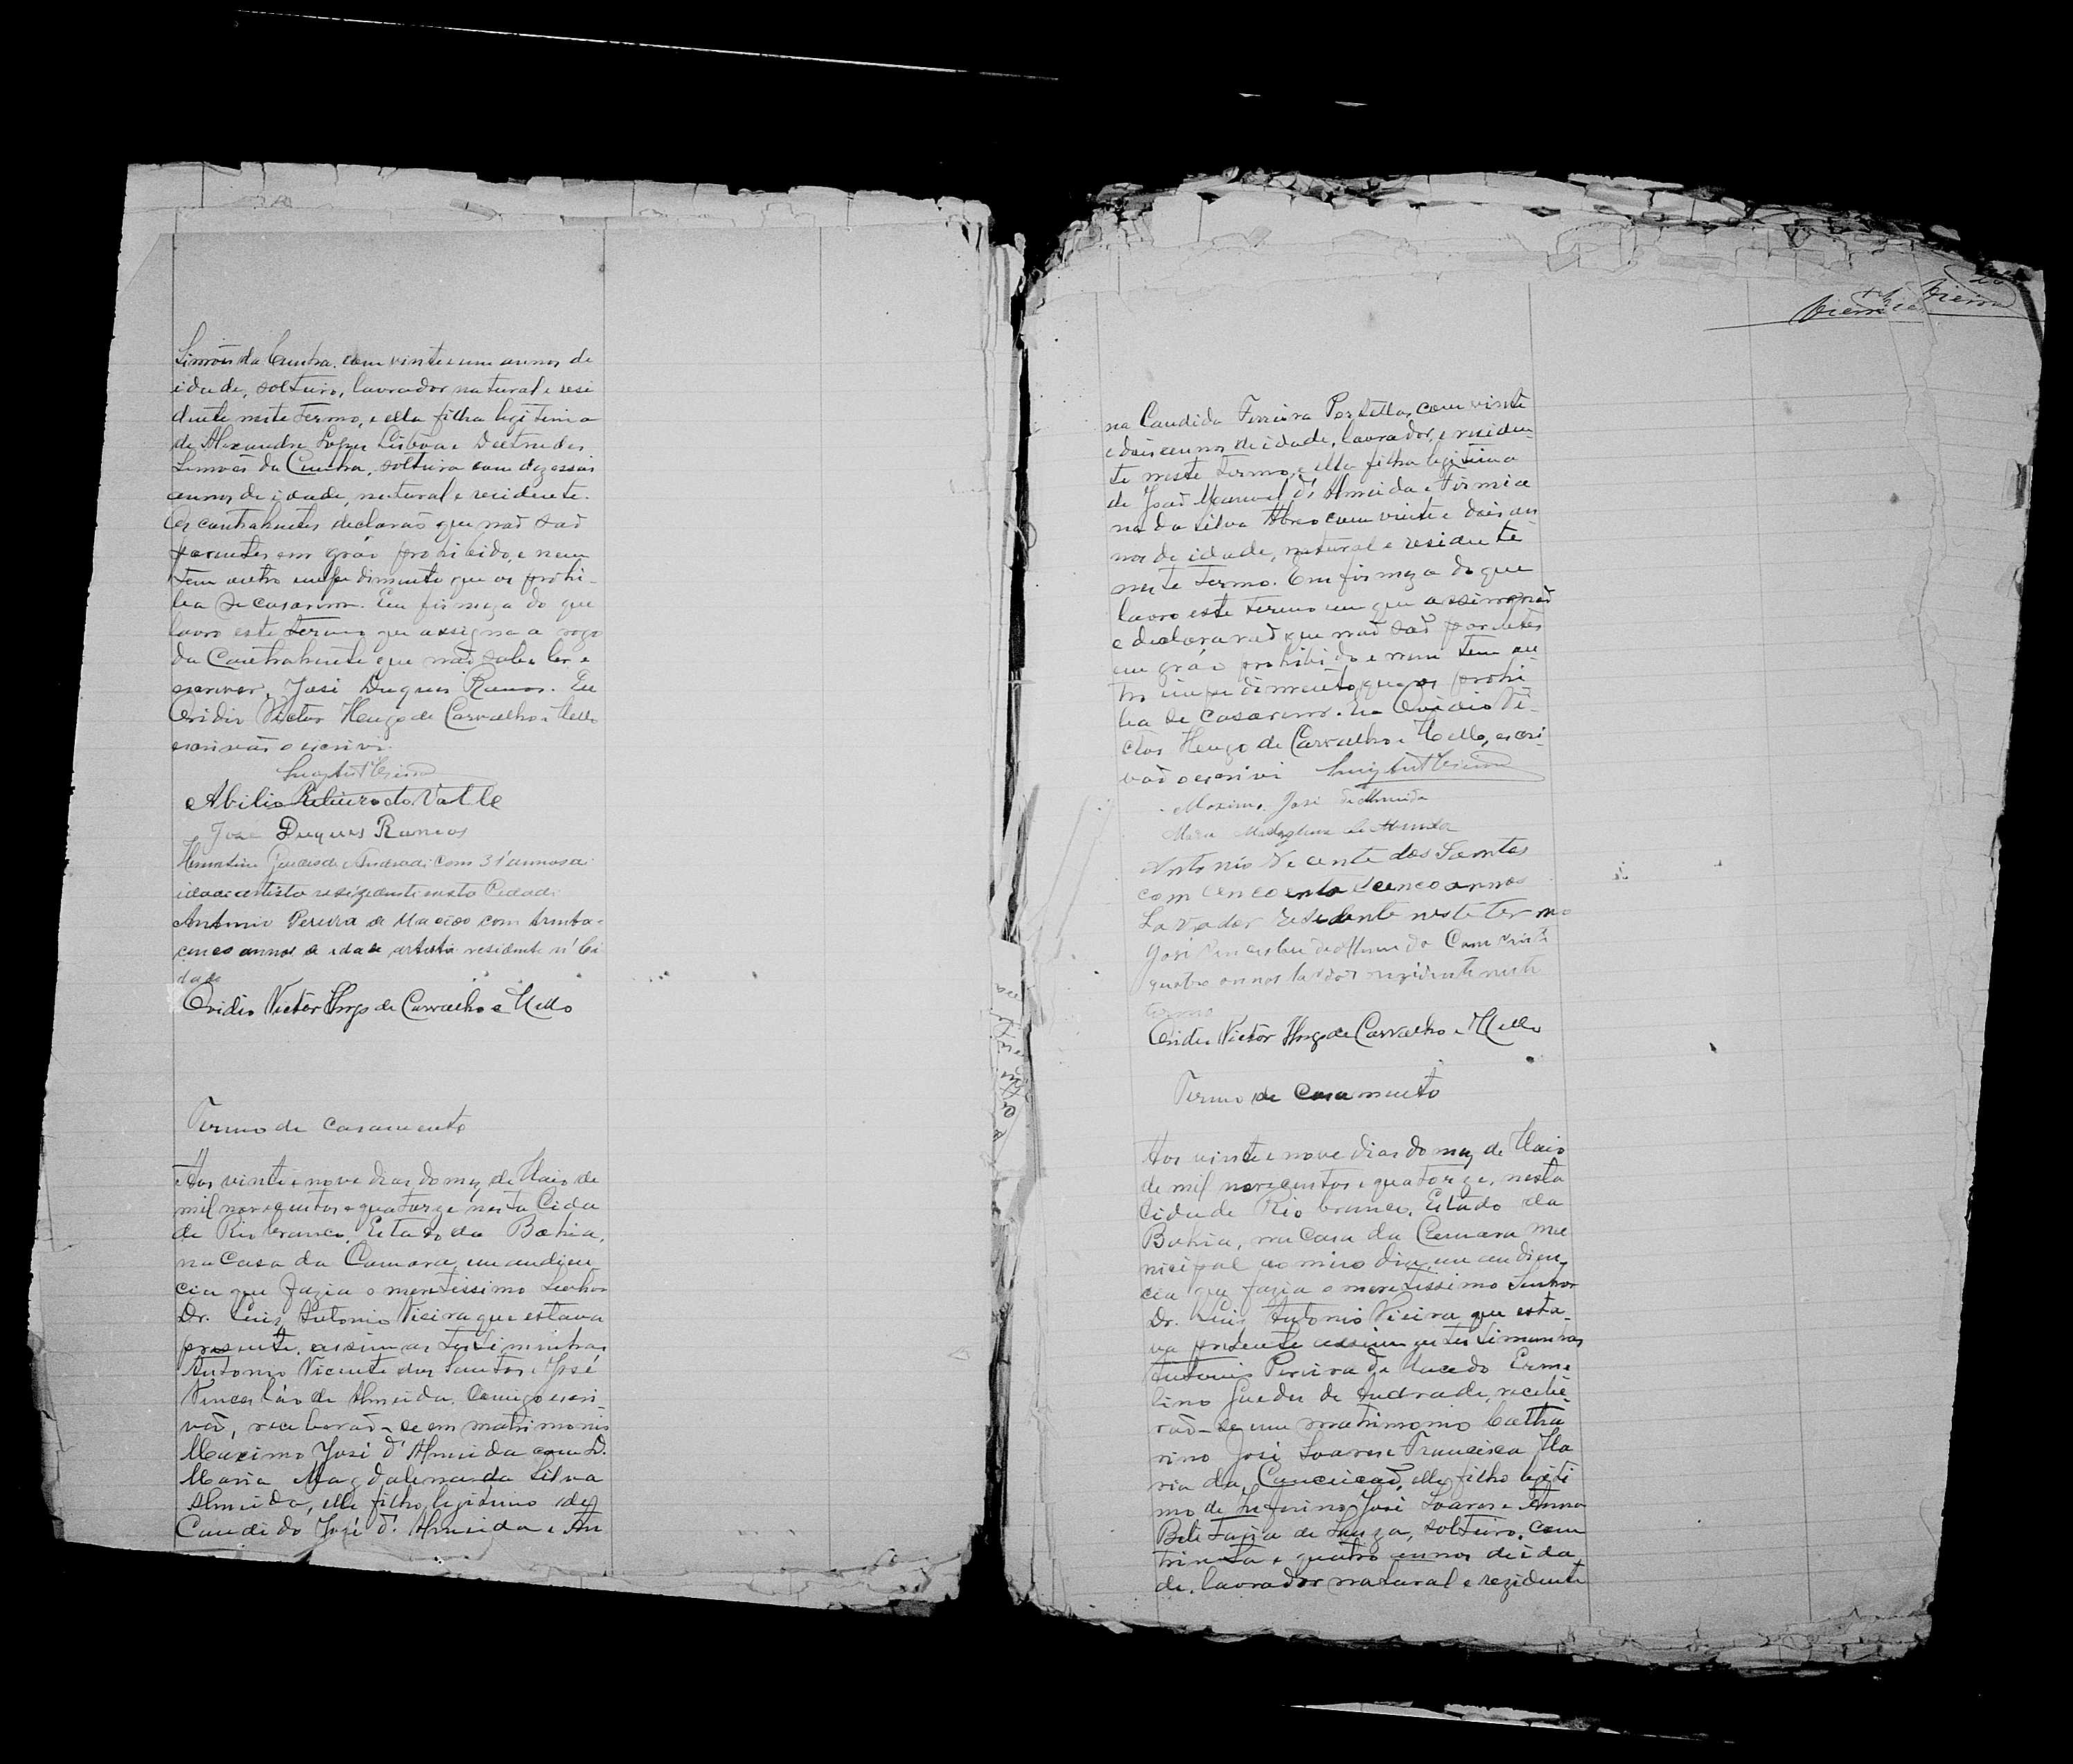 Simões da Cunha, com vinte e um annos de
idade, solteiro, lavrador natural e resi
dente neste termo, e ella filha legitima
de Alexandre Lopes Lisbôa e Deltrudes
Simões da Cunha, solteira com dezesseis
annos de idade, natural e residente.
Os contrahentes declarão que naõ saõ
parentes em gráo prohibido, e nem
tem outro impedimento que os prohi-
ba de casarem. Em firmeza do que
lavro este termo que assigna a rogo
da Contrahente que naõ sabe ler e
escrever, José Duques Ramos. Eu
Ovidio Victor Hugo de Carvalho e Mello
escrivaõ o escrivi.
Luiz Ant Vieira
Abilio Ribeiro do Valle
José Duques Ramos
Guedes de Andrade com 31 annos de
idade artista rezidente nesta Cidade
Antonio Pereira de Macêdo com trinta e
cinco annos de idade artista residente n' Ci
dade
Ovidio Victor Hugo de Carvalho e Mello
Termo de casamento
Aos vinte e nove dias do mez de Maio de
mil novecentos e quatorze nesta Cida
de Rio branco, Estado da Bahia,
na Casa da Camara, em audien
cia que fazia o meritissimo Senhor
Dr. Luiz Antonio Vieira que estava
presente, assim as testimunhas
Antonio Vicente dos Santos e José
Venceslão de Almeida, comigo escri-
vaõ, receberaõ-se em matrimonio
Maximo José d'Almeida com D.
Maria Magdalena da Silva
Almeida, elle filho legitimo de
Candido José d'Almeida e An
Vieira
na Candida Ferreira Portella, com vinte
e dois annos de idade, lavrador, e residen-
te neste termo, e ella filha legitima
de João Manoel d'Almeida e Firmia
na da Silva Abreo com vinte e dois an
nos de idade, natural e residente
neste termo. Em firmeza do que
lavro este termo em que assignaõ
e declararaõ que naõ saõ parentes
em gráo prohibido e nem tem ou
tro impedimento que os prohi
ba de casarem. Eu Ovidio Vi-
ctor Hugo de Carvalho e Mello, escri-
vaõ o escrivi Luiz Ant Vieira
Maximo José de Almeida
Maria Magdalena de Almeida
Antonio Vicente dos Santos
com cencoenta e cenco annos
Lavador Residente neste termo
José Venceslau de Almeida Com vinte
quatro annos lavdor rezidente neste
termo
Ovidio Victor Hugo de Carvalho e Mello
Termo de casamento
Aos vinte e nove dias do mez de Maio
de mil novecentos e quatorze, nesta
Cidade Rio branco, Estado da
Bahia, na Casa da Camara Mu
nicipal ao meio dia, em audien
cia que fazia o meretissimo Senhor
Dr. Luiz Antonio Vieira que esta-
va presente assim as testimunhas
Antonio Pereira de Macedo Erme
lino Guedes de Andrade, recebe-
raõ-se em matrimonio Catha
rino José Soares e Francisca Ma
ria da Conceicaõ, elle filho legiti
mo de Zeferino José Soares e Anna
Beli taria de Souza, solteiro, com
trinta e quatro annos de ida
de, lavrador natural e rezidente